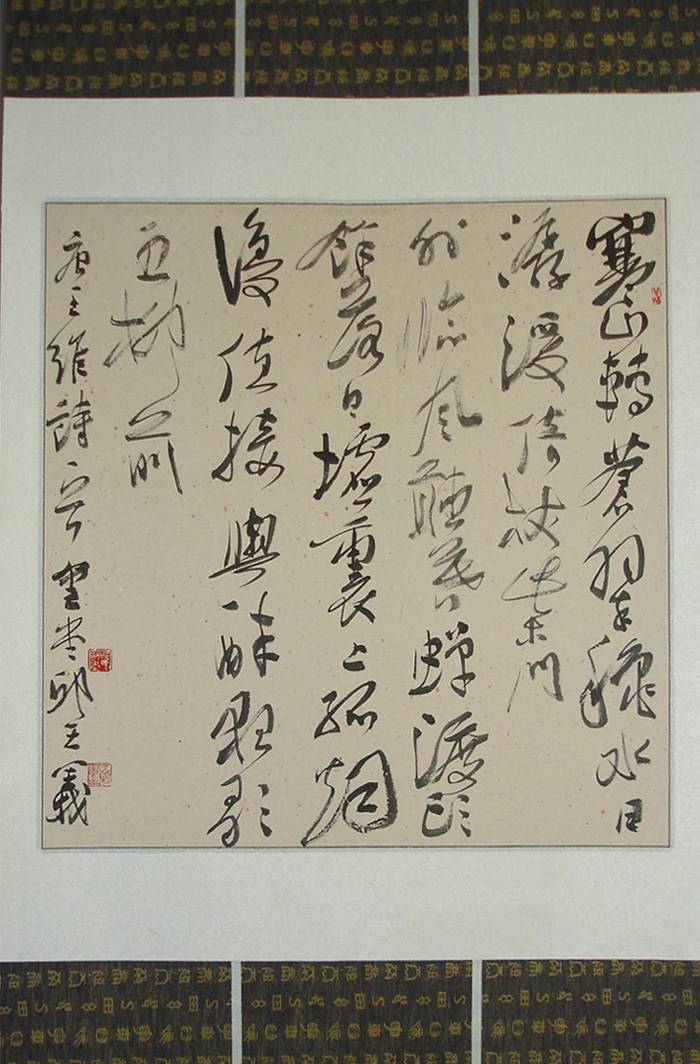 寒山轉蒼翠秋水日
潺湲倚杖柴門
外臨風聽暮蟬渡頭
餘落日墟裏上孤烟
復值接輿醉狂歌
五柳前
唐王維詩一首堂邱義